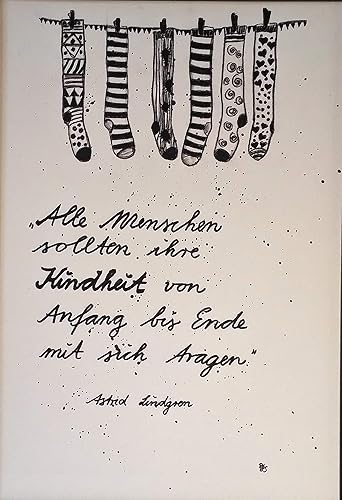 „Alle Menschen
sollten ihre
Kindheit von
Anfang bis Ende
mit sich tragen."
Astrid Lindgren